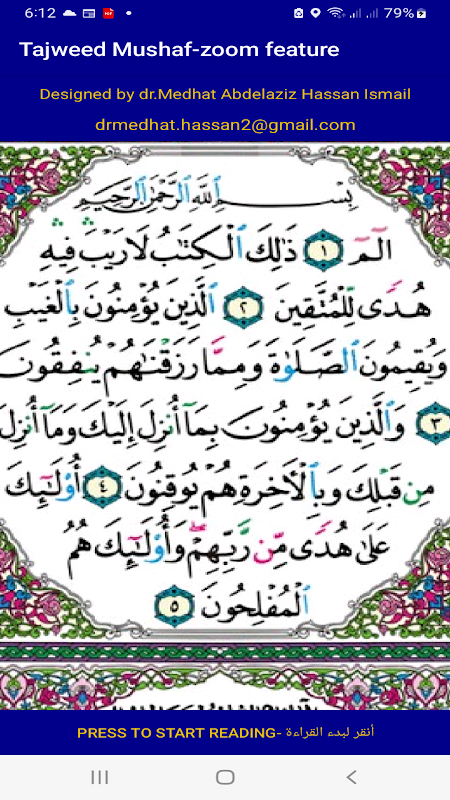 6:12
79%
Tajweed Mushaf-zoom feature
Designed by dr.Medhat Abdelaziz Hassan Ismail
drmedhat.hassan2@gmail.com
بِسْمِ ٱللَّهِ ٱلرَّحْمَٰنِ ٱلرَّحِيمِ
الٓمٓ ١ ذَٰلِكَ ٱلْكِتَٰبُ لَا رَيْبَ ۛ فِيهِ ۛ
هُدًى لِّلْمُتَّقِينَ ٢ ٱلَّذِينَ يُؤْمِنُونَ بِٱلْغَيْبِ
وَيُقِيمُونَ ٱلصَّلَوٰةَ وَمِمَّا رَزَقْنَٰهُمْ يُنفِقُونَ
٣ وَٱلَّذِينَ يُؤْمِنُونَ بِمَآ أُنزِلَ إِلَيْكَ وَمَآ أُنزِلَ
مِن قَبْلِكَ وَبِٱلْءَاخِرَةِ هُمْ يُوقِنُونَ ٤ أُو۟لَٰٓئِكَ
عَلَىٰ هُدًى مِّن رَّبِّهِمْ ۖ وَأُو۟لَٰٓئِكَ هُمُ
ٱلْمُفْلِحُونَ ٥
PRESS TO START READING- أنقر لبدء القراءة